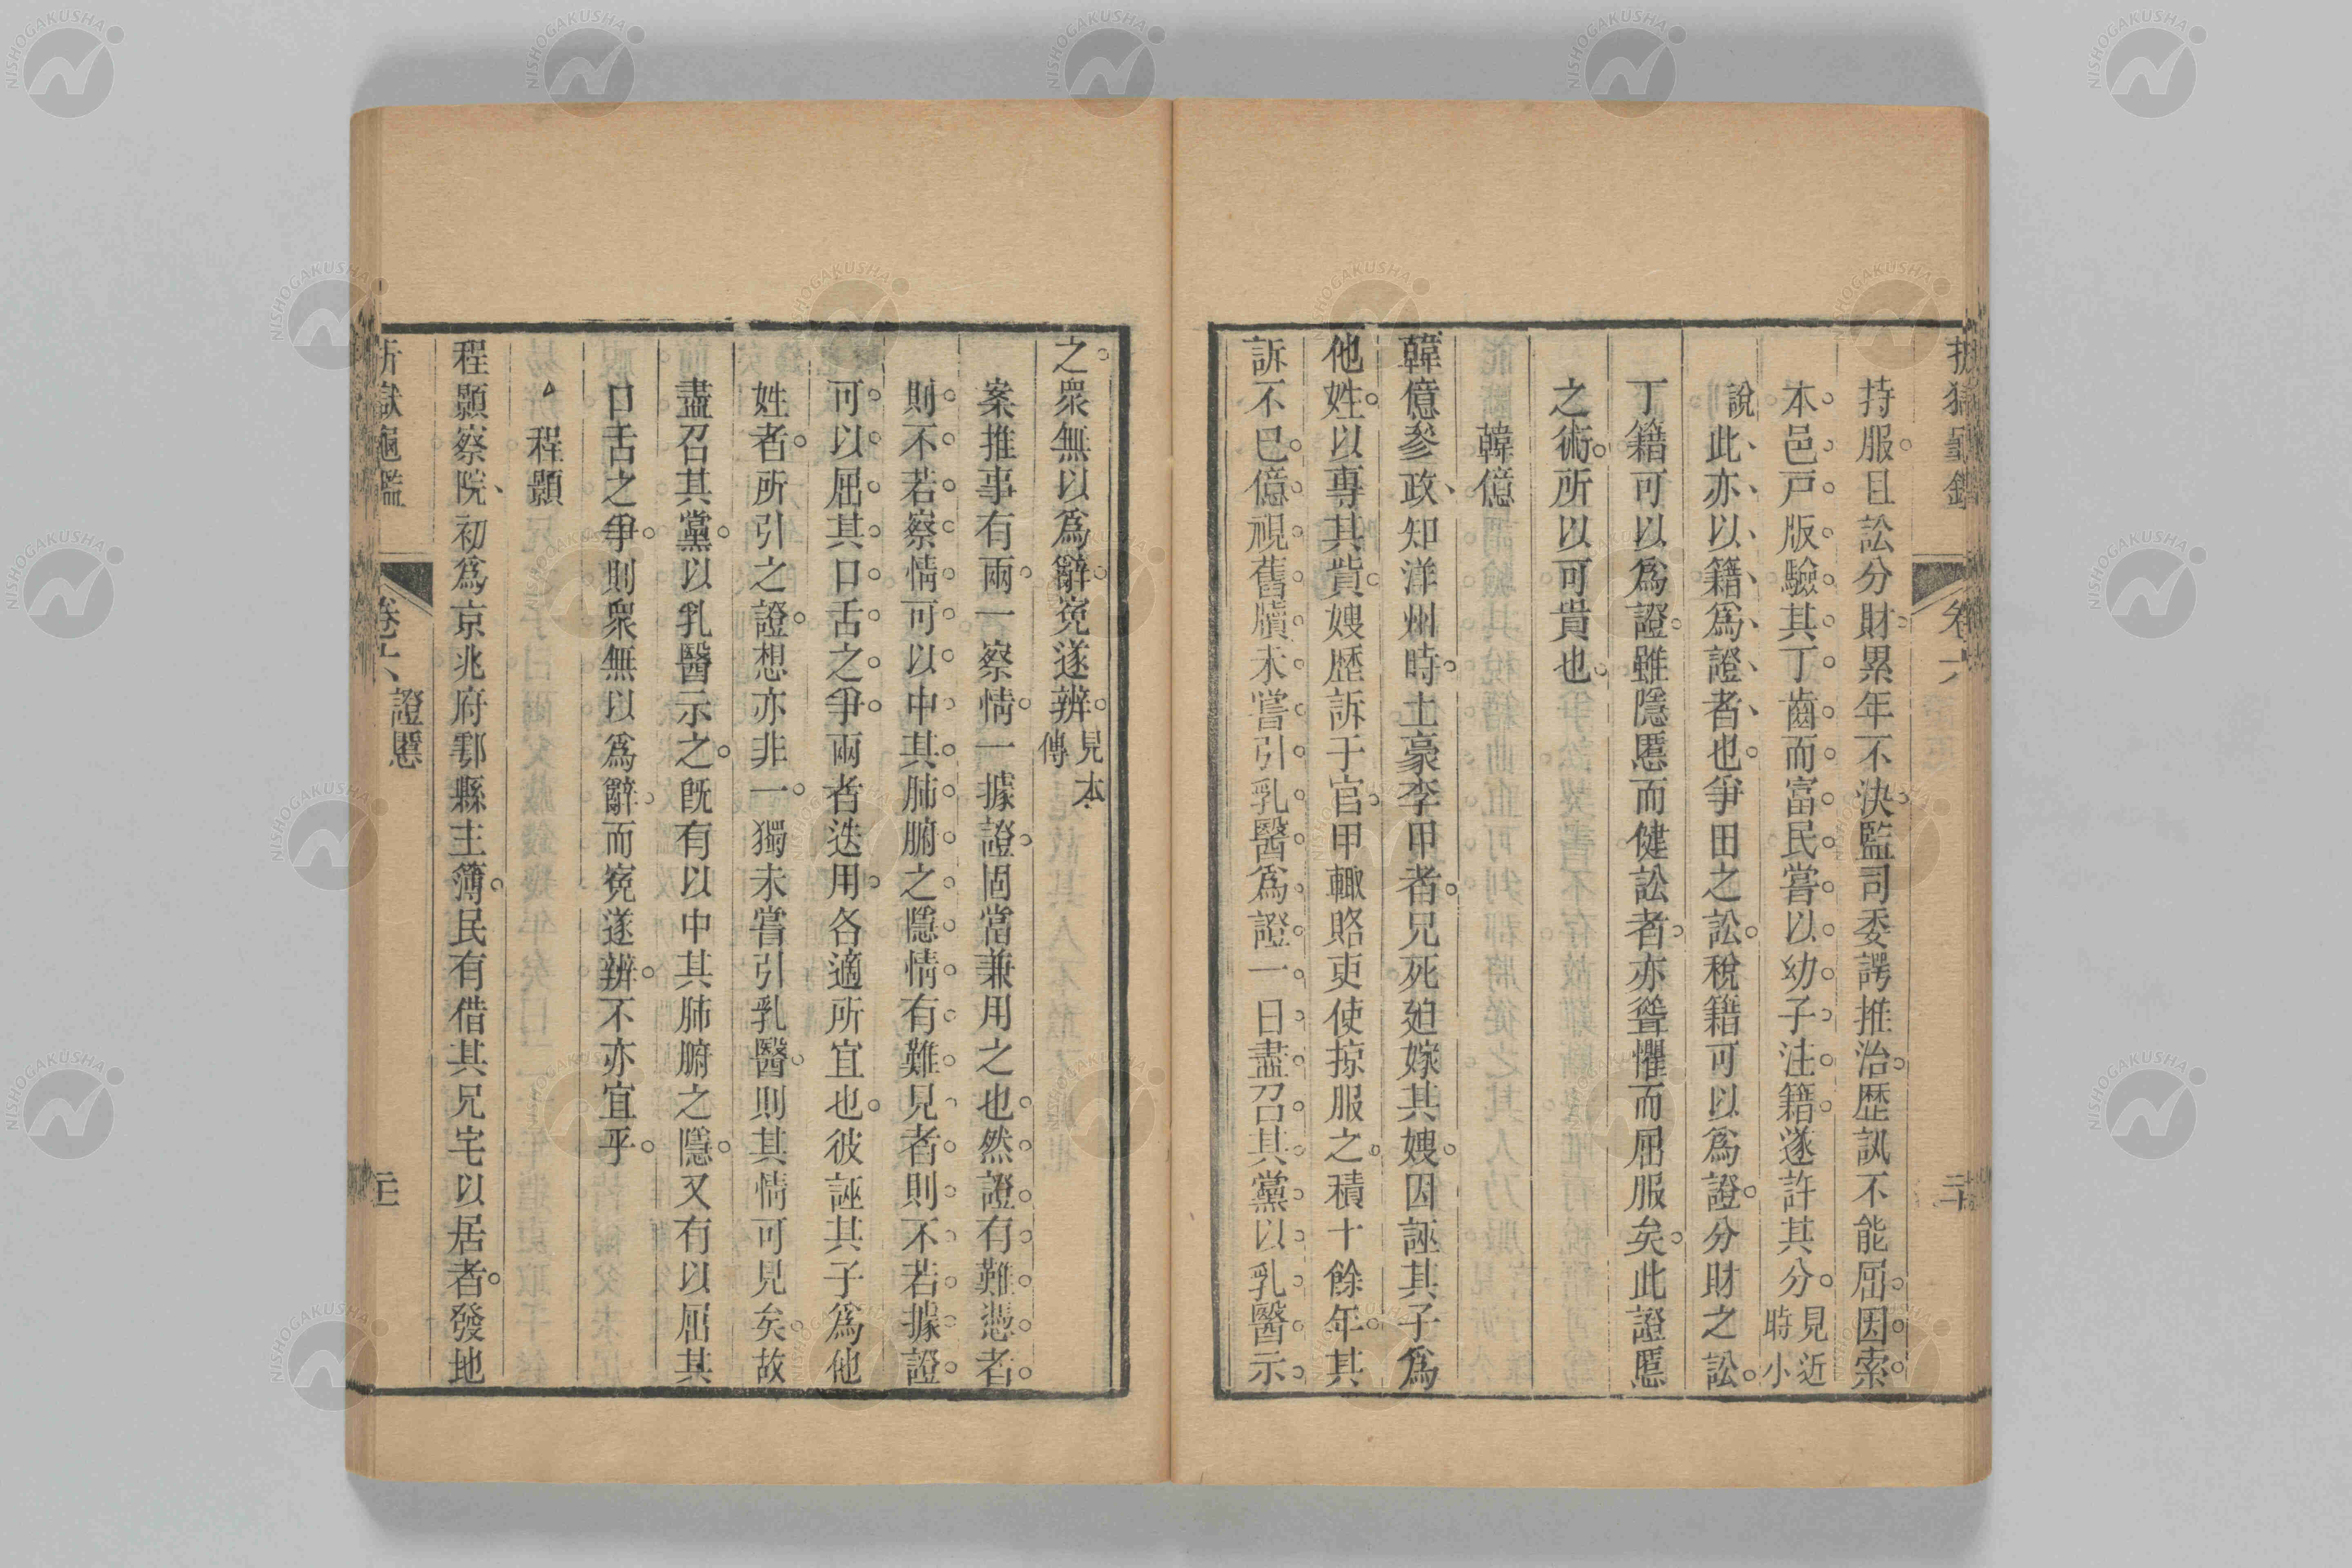 折獄龜鑑
卷六
二十
持服。且訟分財。累年不決。監司委諤推治。歷訊不能屈。因。索。
本。邑。戸。版。驗。其。丁。齒。而。富。民。嘗。以。幼。子。注。籍。遂許其分。見近時小
說此、亦、以、籍、爲、證、者、也。爭田之訟。稅籍可以爲證。分財之訟。
丁籍可以爲證。雖隱慝而健訟者。亦聳懼而屈服矣。此證慝
之術。所以可貴也。
韓億
韓億參政、知洋州時。土豪李甲者。兄死廹嫁其嫂。因誣其子爲
他姓。以專其貲。嫂歷訴于官。甲輙賂吏使掠服之。積十餘年。其
訴不已。億。視。舊。牘。未。嘗。引。乳。醫。爲。證。一。日。盡。召。其。黨。以。乳。醫。示。
之。衆無以爲辭。寃遂辨。見本傳
案推事有兩。一察情。一據證。固當兼用之也。然。證。有。難。憑。者。
則。不。若。察。情。可。以。中。其。肺。腑。之。隱。情。有。難。見。者。則。不。若。據。證。
可。以。屈。其。口。舌。之。爭。兩者迭用。各適所宜也。彼誣其子爲他
姓者。所引之證。想亦非一。獨未嘗引乳醫。則其情可見矣。故
盡召其黨。以乳醫示之。旣有以中其肺腑之隱。又有以屈其
口舌之爭。則衆無以爲辭。而寃遂辨。不亦宜乎。
程顥
程顥察院、初爲京兆府鄠縣主簿。民有借其兄宅以居者。發地
折獄龜鑑
卷六
證慝
二十一
NISHOGAKUSHA